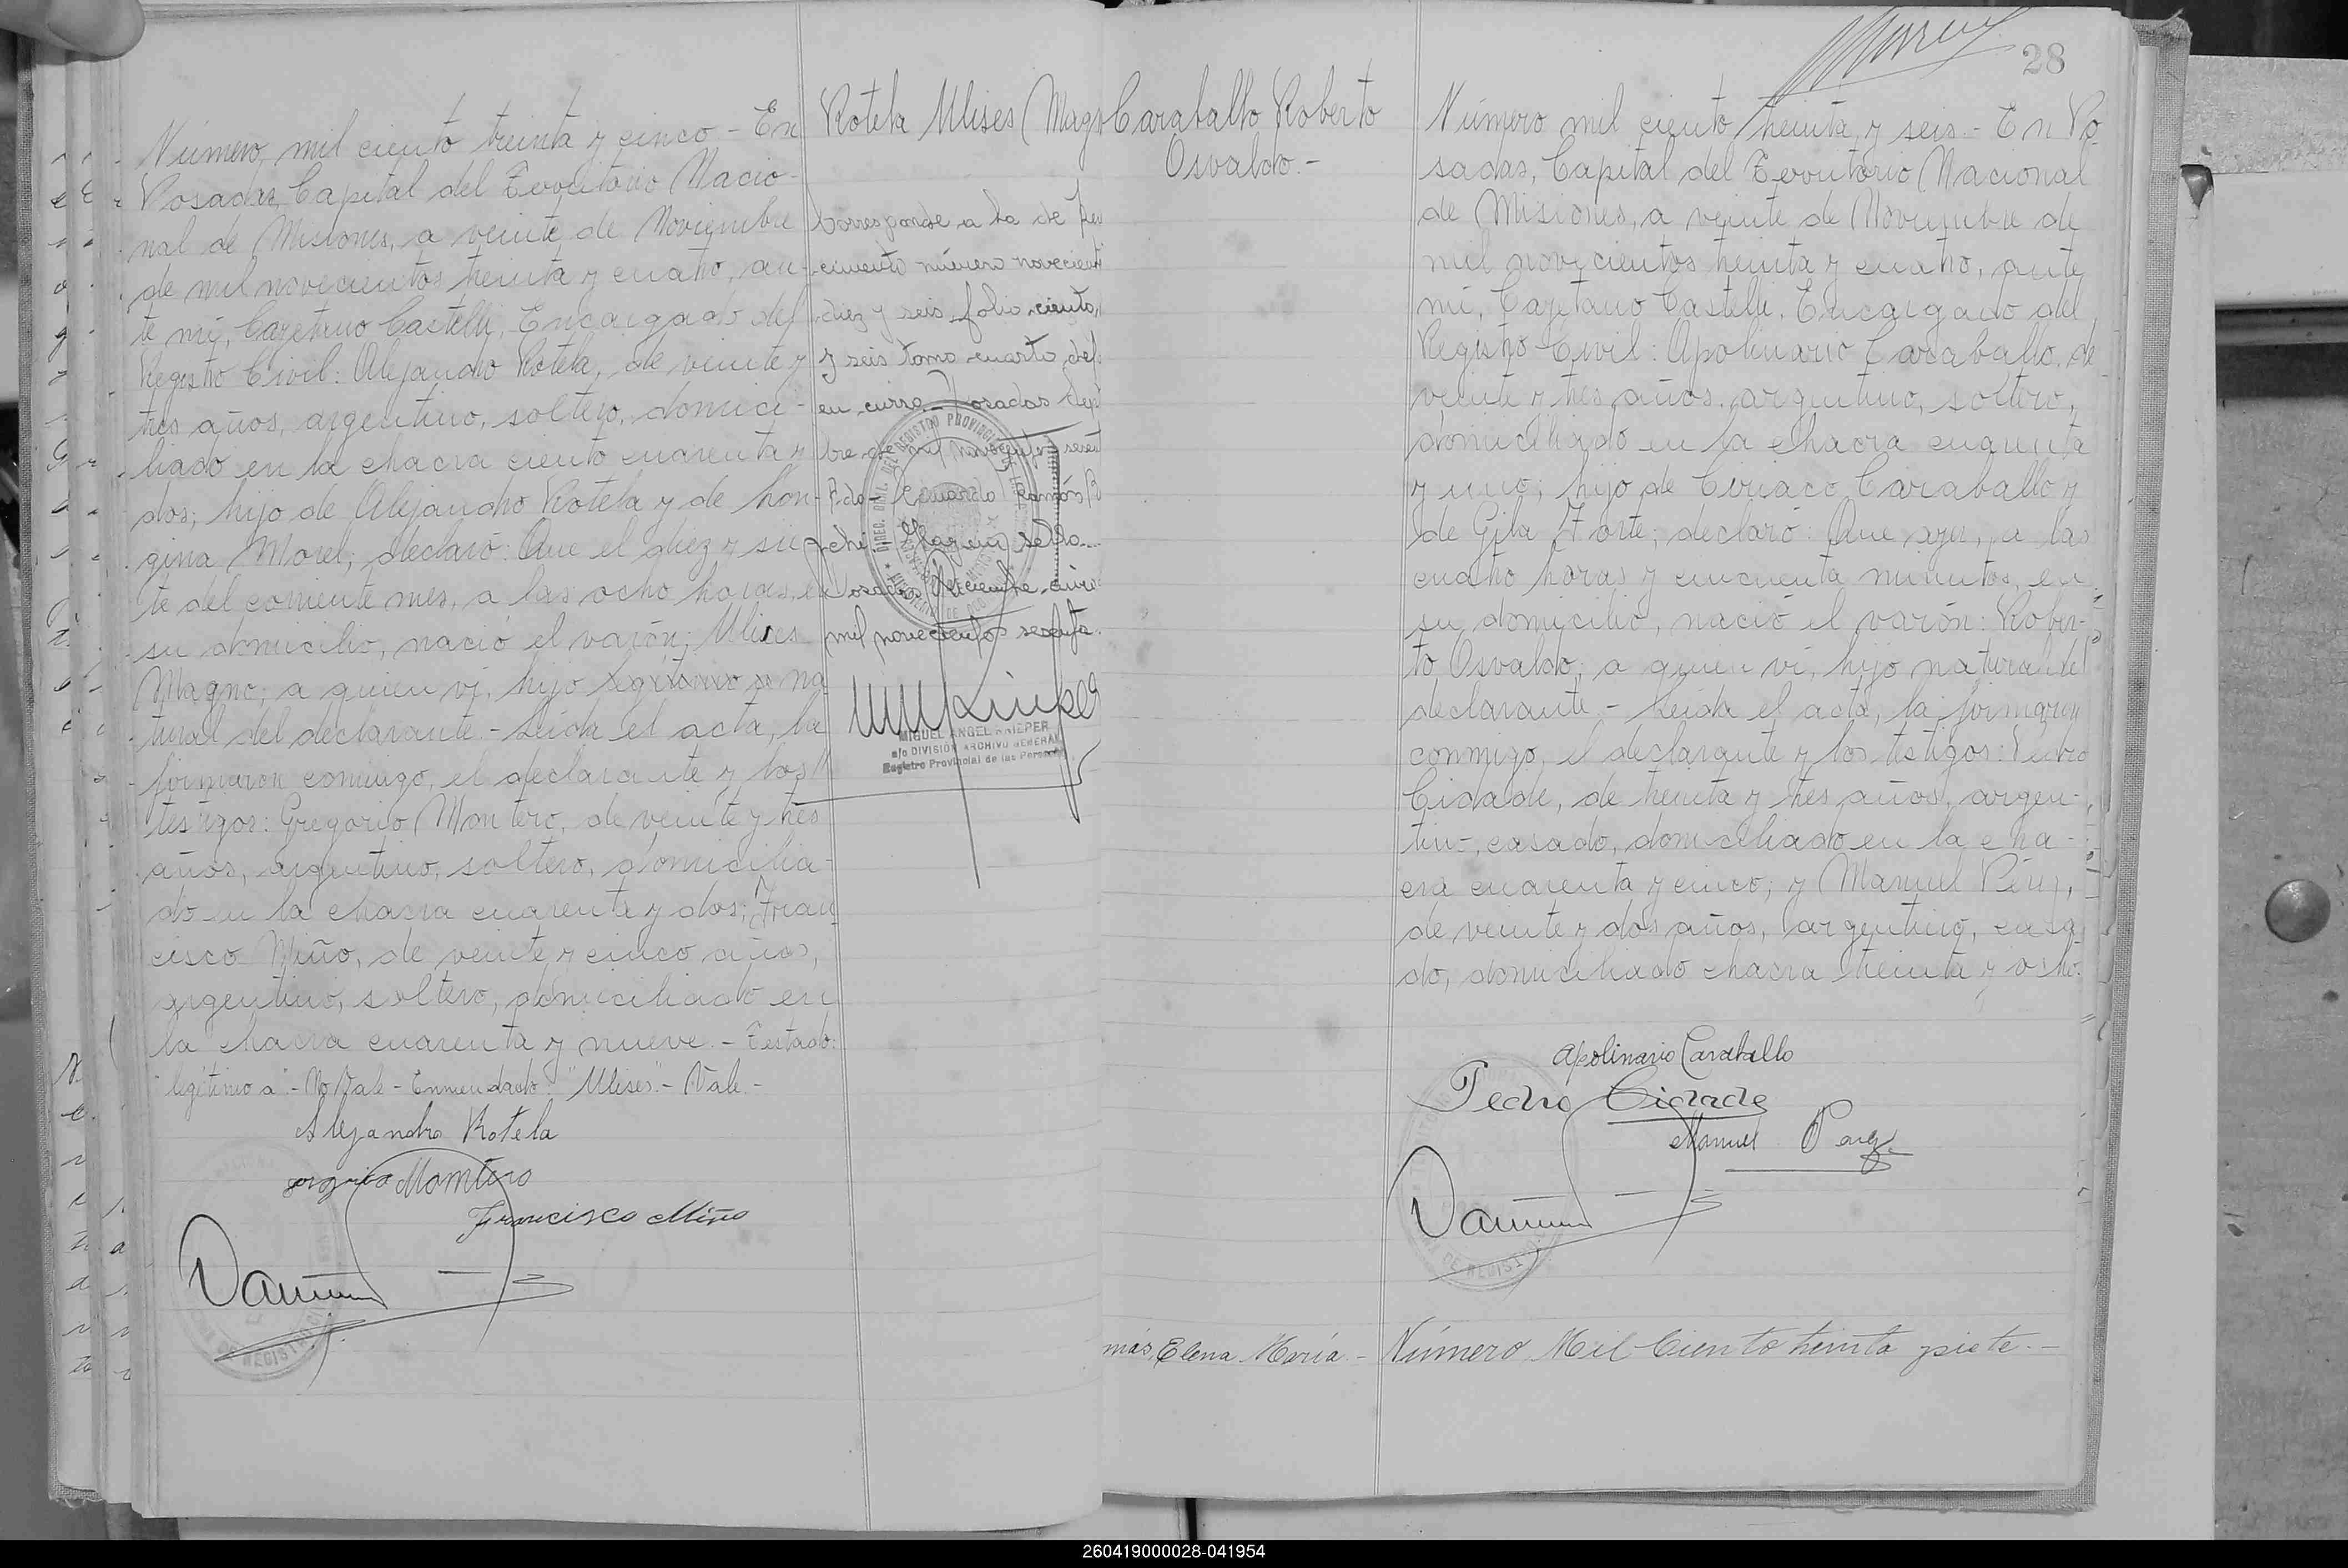 Número, mil ciento treinta y cinco - En
Posadas, Capital del Territorio Nacio-
nal de Misiones, a veinte de Noviembre
de mil novecientos treinta y cuatro, an-
te mí, Cayetano Castelli, Encargado del
Registro Civil: Alejandro Rotela, de veinte y
tres años, argentino, soltero, domici-
liado en la chacra ciento cuarenta y
dos; hijo de Alejandro Rotela y de Lon-
gina Morel; declaró: Que el diez y sie-
te del corriente mes, a las ocho horas, en
su domicilio, nació el varón: Ulises
Magno; a quien ví, hijo legítimo a na
tural del declarante - Leída el acta, la
firmaron conmigo, el declarante y los
testigos: Gregorio Montero, de veinte y tres
años, argentino, soltero, domicilia-
do en la chacra cuarenta y dos; Fran
cisco Miño, de veinte y cinco años,
argentino, soltero, domiciliado en
la chacra cuarenta y nueve. - Testado:
"legítimo a" - No Vale - Enmendado: "Ulises" - Vale -
Alejandro Rotela
Montero
Francisco Miño
Rotela Ulises Mag
Corresponde a la de
cimiento número novecient
diez y seis, folio ciento
y seis tomo cuarto, del
en curso. Posadas
bre de mil novecientos
Fdo- Eduardo Ramós
sello.-
Posadas Diciembre
mil novecientos sesenta
MIGUEL ANGEL KNIEPER
a/c DIVISIÓN ARCHIVO GENERAL
Registro Provincial de las Personas
28
Caraballo Roberto
Osvaldo.-
Número mil ciento treinta y seis - En Po
sadas, Capital del Territorio Nacional
de Misiones, a veinte de Noviembre de
mil novecientos treinta y cuatro, ante
mí, Cayetano Castelli, Encargado del
Registro Civil: Apolinario Caraballo, de
veinte y tres años, argentino, soltero,
domiciliado en la chacra cuarenta
y uno; hijo de Ciriaco Caraballo y
de Gila Forte; declaró: Que ayer, a las
cuatro horas y cincuenta minutos, en
su domicilio, nació el varón: Rober-
to Osvaldo; a quien ví, hijo natural del
declarante - Leída el acta, la firmaron
conmigo, el declarante y los testigos: Pedro
Cidade, de treinta y tres años, argen-
tino, casado, domiciliado en la cha-
cra cuarenta y cinco; y Manuel Pérez,
de veinte y dos años, argentino, casa
do, domiciliado chacra treinta y ocho.
Apolinario Caraballo
Pedro Cidade
Manuel Parez
más Elena María. - Número Mil Ciento treinta y siete. -
260419000028-041954